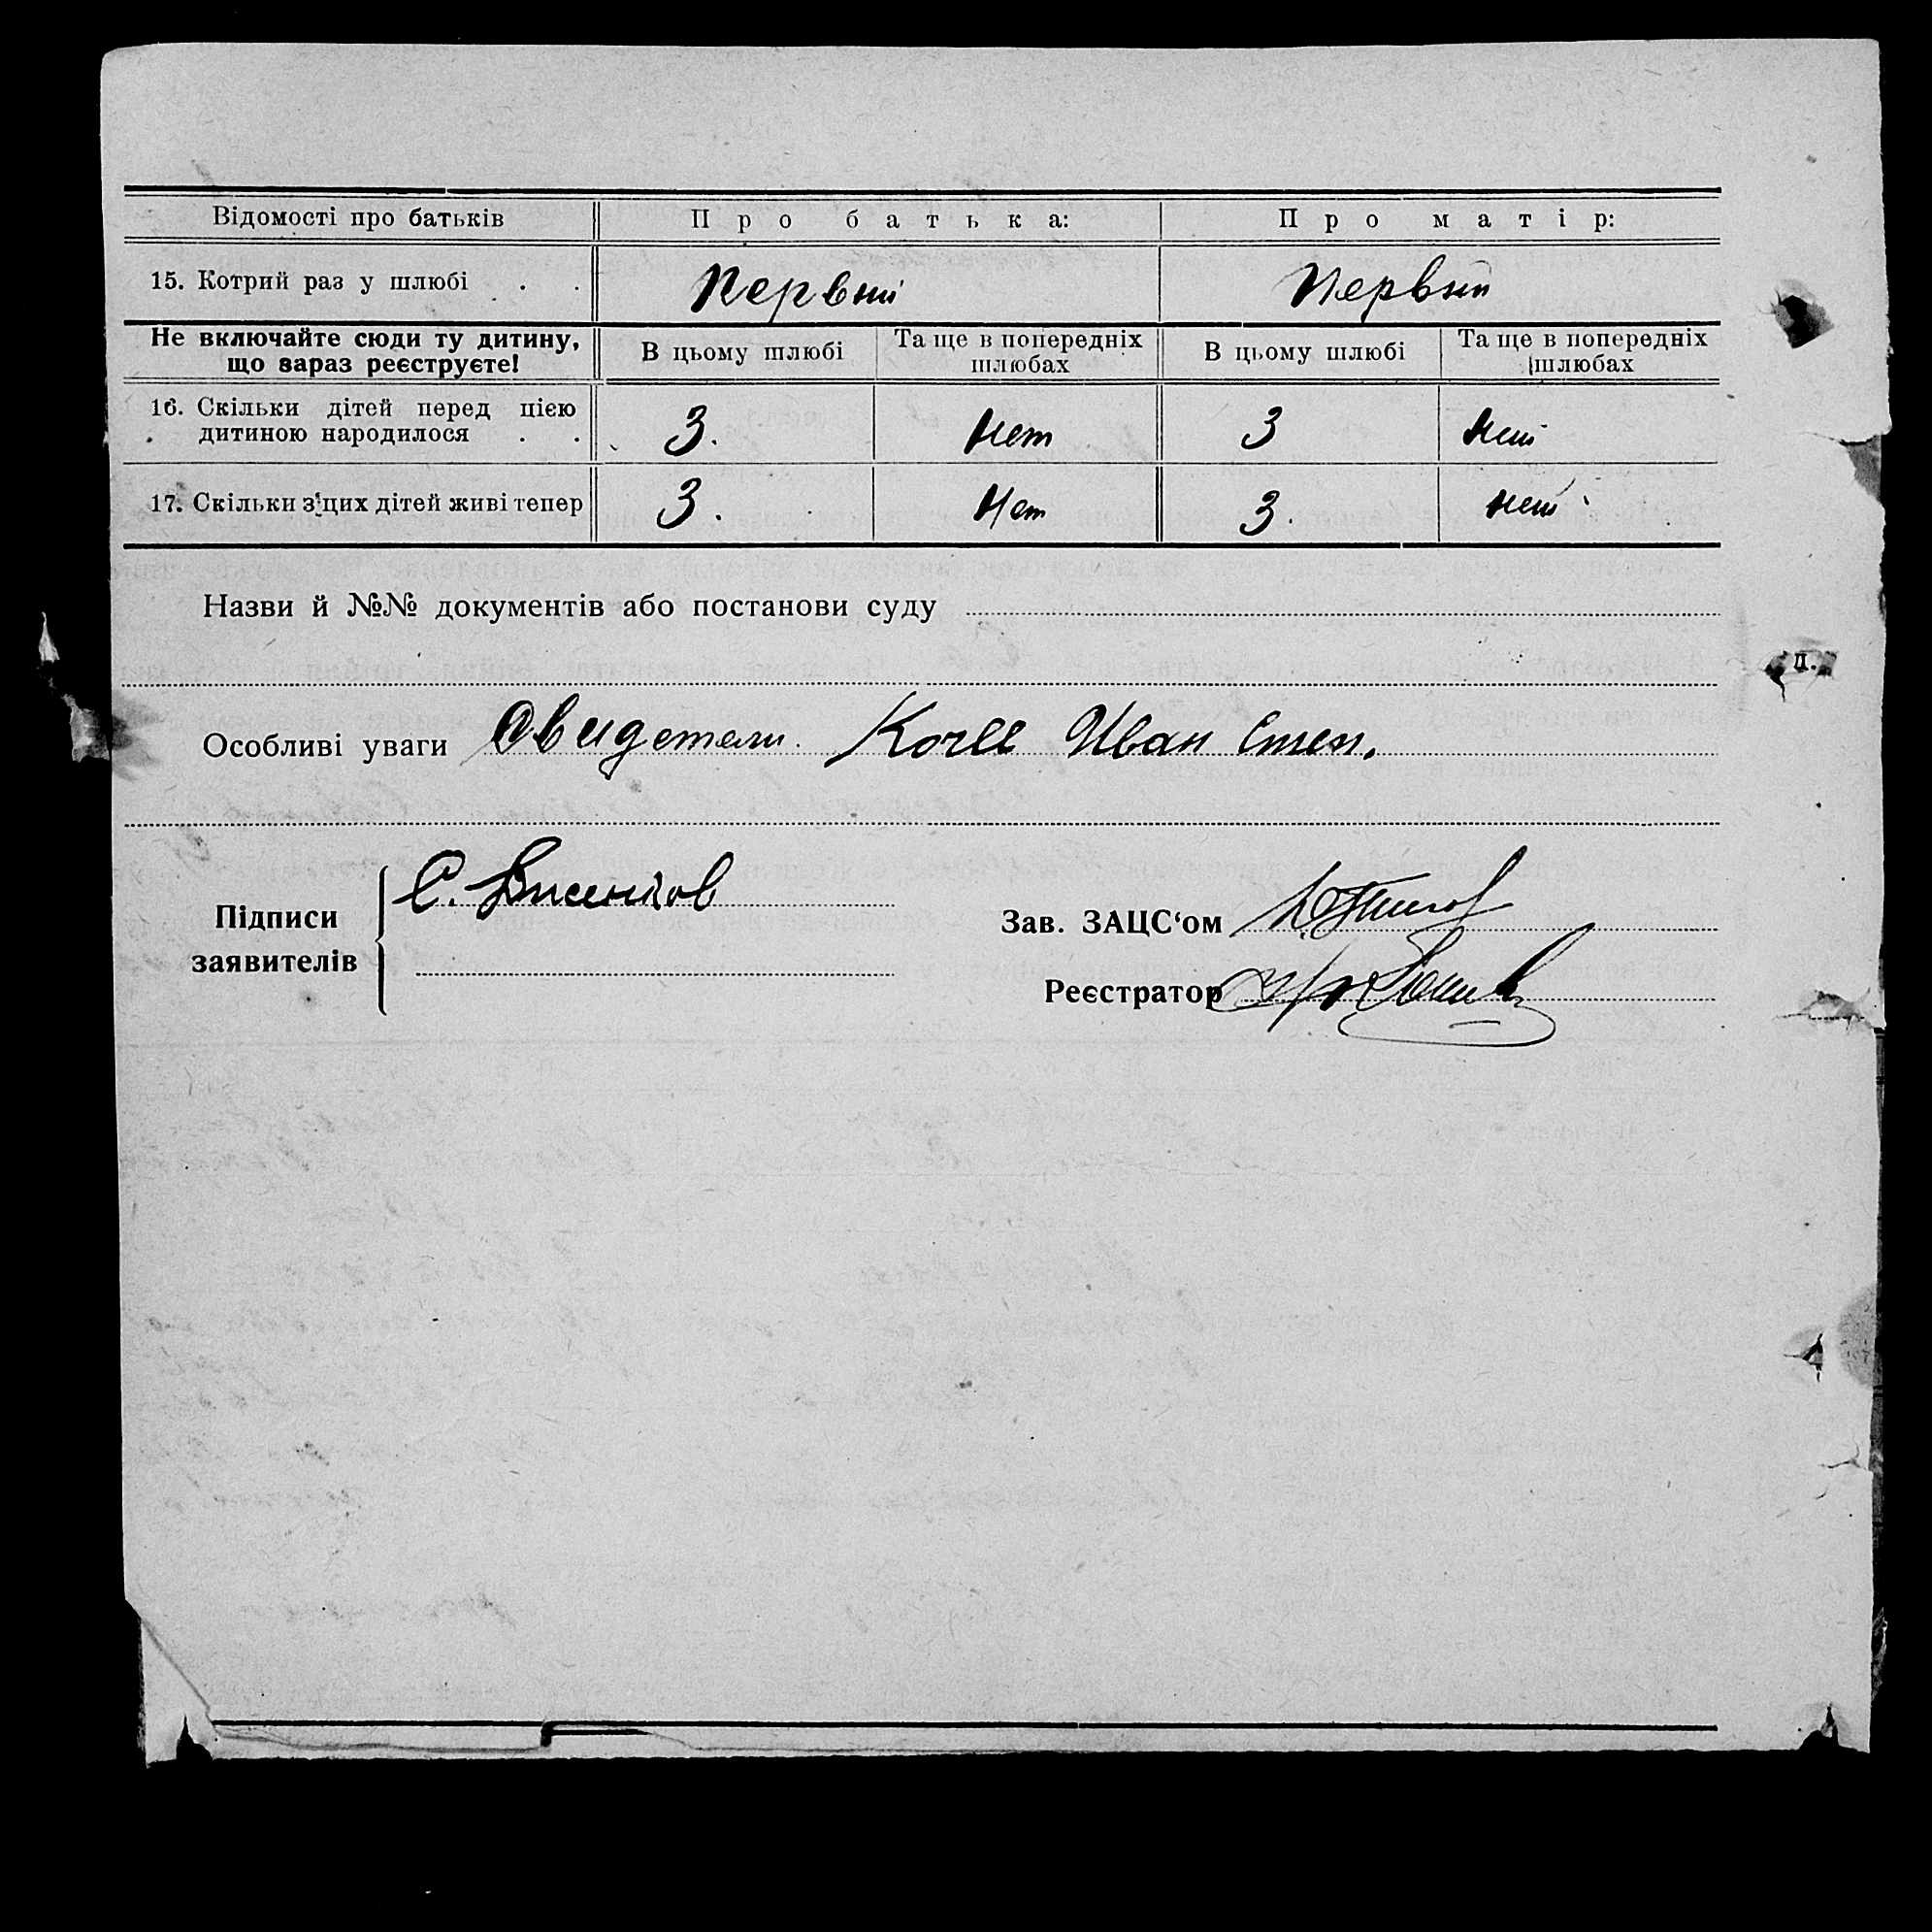 Відомості про батьків Про батька: Про матір:
15. Котрий раз у шлюбі . . Первый Первый
Не включайте сюди ту дитину, що зараз реєструєте! В цьому шлюбі Та ще в попередніх шлюбах В цьому шлюбі Та ще в попередніх шлюбах
16. Скільки дітей перед цією дитиною народилося . . 3. Нет 3 Нет
17. Скільки з цих дітей живі тепер 3. Нет 3. Нет
Назви й №№ документів або постанови суду
Особливі уваги Свидетели. Иван Степ.
Підписи заявителів С.
Зав. ЗАЦС‘ом
Реєстратор